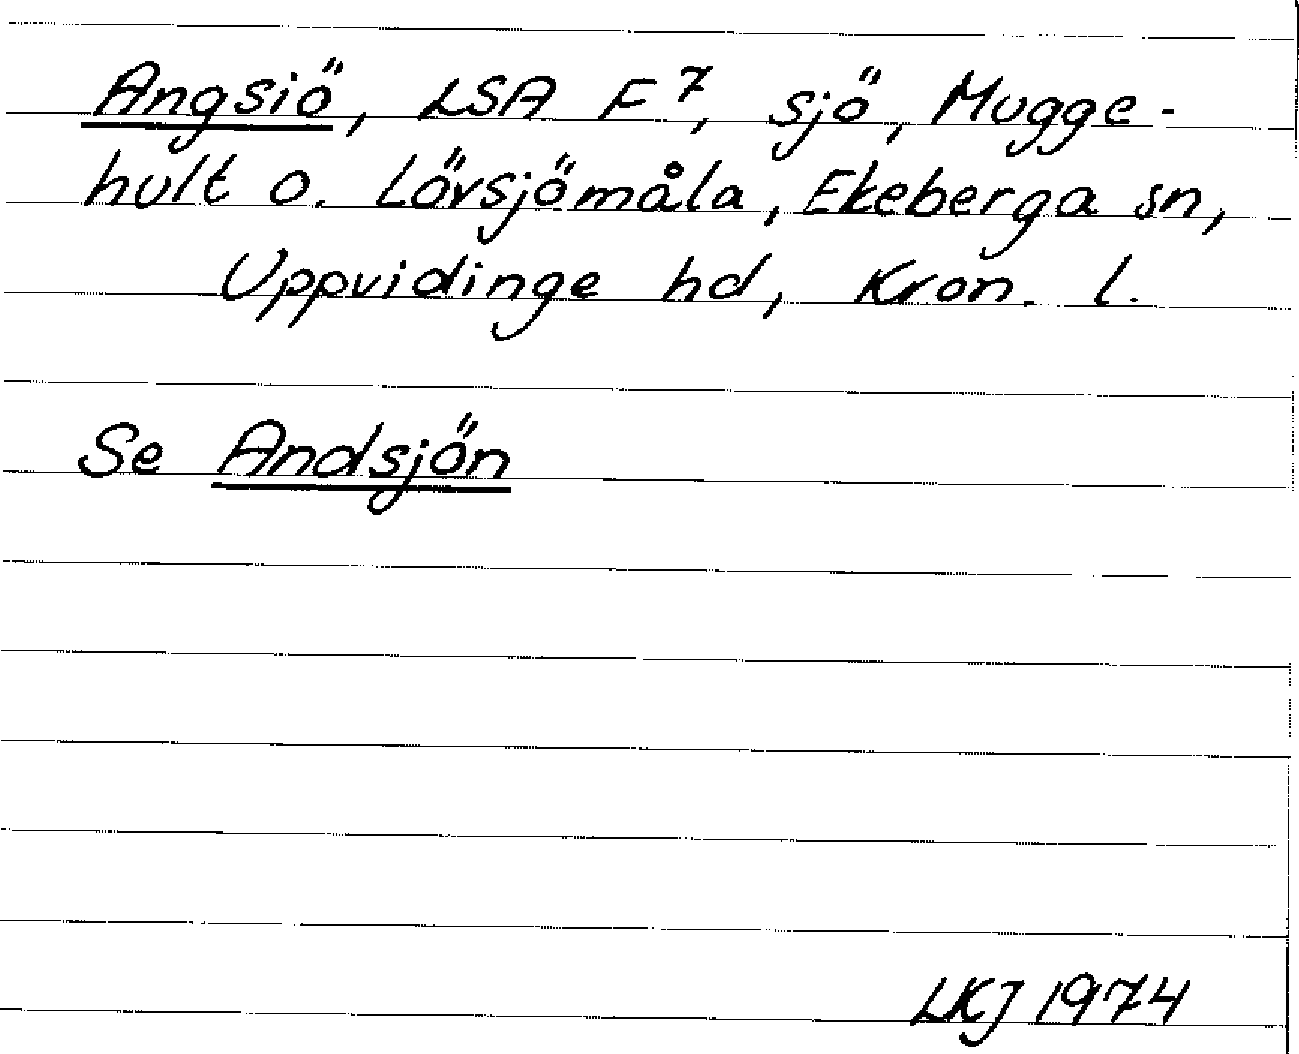 Angsiö, LSA F⁷, sjö, Mugge-
hult o. Lövsjömåla, Ekeberga sn,
Uppvidinge hd, Kron. l.
Se Andsjön
LKJ 1974